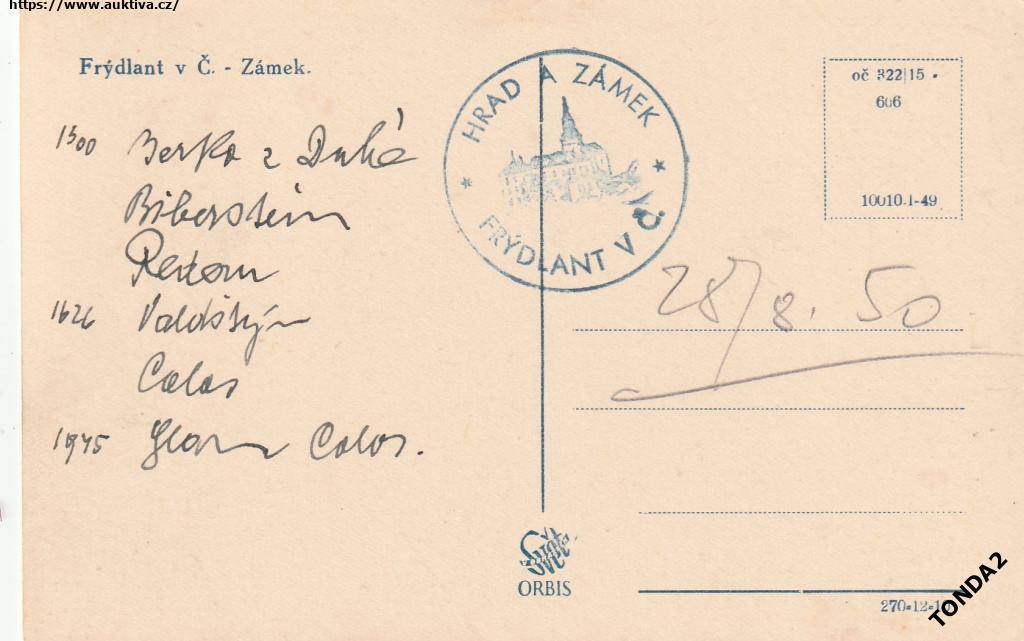 https://www.auktiva.cz/
Frýdlant v Č. - Zámek.
HRAD A ZÁMEK
FRÝDLANT V Č.
oč 322|15
606
10010-1-49
1300 Berka z Dubé
Biberstein
Redern
1626 Valdštýn
Calas
1945 Calas.
28/8. 50
ORBIS
270-12-1
TONDA2